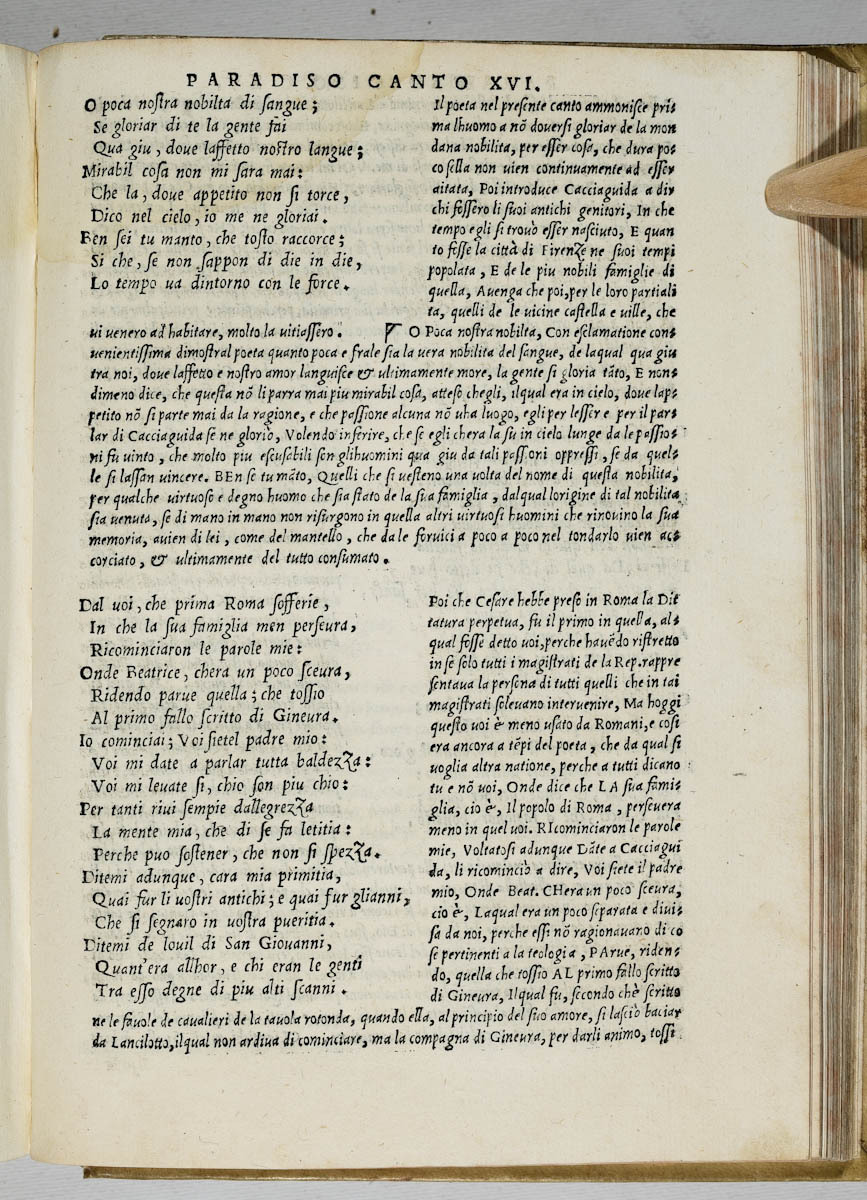 PARADISO CANTO XVI.
O poca nostra nobilta di sangue;
Se gloriar di te la gente fai
Qua giu, doue laffetto nostro langue;
Mirabil cosa non mi sara mai:
Che la, doue appetito non si torce,
Dico nel cielo, io me ne gloriai.
Ben sei tu manto, che tosto raccorce;
Si che, se non sappon di die in die,
Lo tempo ua dintorno con le force.
Il poeta nel presente canto ammonisce pri-
ma lhuomo a nõ douersi gloriar de la mon
dana nobilita, per esser cosa, che dura po-
co sella non uien continuamente ad esser
aitata, Poi introduce Cacciaguida a dir
chi fossero li suoi antichi genitori, In che
tempo egli si trouò esser nasciuto, E quan
to fosse la città di Firenze ne suoi tempi
popolata, E de le piu nobili famiglie di
quella, Auenga che poi, per le loro partiali
ta, quelli de le uicine castella e uille, che
ui uenero ad habitare, molto la uitiassero. O Poca nostra nobilta, Con esclamatione con-
uenientissima dimostral poeta quanto poca e frale sia la uera nobilita del sangue, de laqual qua giu
tra noi, doue laffetto e nostro amor languisce & ultimamente more, la gente si gloria tãto, E non
dimeno dice, che questa nõ li parra mai piu mirabil cosa, atteso chegli, ilqual era in cielo, doue lap-
petito nõ si parte mai da la ragione, e che passione alcuna nõ uha luogo, egli per lesser e per il par-
lar di Cacciaguida se ne gloriò, Volendo inferire, che se egli chera la su in cielo lunge da le passio-
ni fu uinto, che molto piu escusabili son glihuomini qua giu da tali passioni oppressi, se da quel-
le si lassan uincere. BEn se tu mãto, Quelli che si uesteno una uolta del nome di questa nobilita,
per qualche uirtuoso e degno huomo che sia stato de la sua famiglia, dalqual lorigine di tal nobilita
sia uenuta, se di mano in mano non risurgono in quella altri uirtuosi huomini che rinouino la sua
memoria, auien di lei, come del mantello, che da le foruici a poco a poco nel tondarlo uien ac-
corciato, & ultimamente del tutto consumato.
Dal uoi, che prima Roma sofferie,
In che la sua famiglia men perseura,
Ricominciaron le parole mie:
Onde Beatrice, chera un poco sceura,
Ridendo parue quella; che tossio
Al primo fallo scritto di Gineura.
Io cominciai; Voi sietel padre mio:
Voi mi date a parlar tutta baldezza:
Voi mi leuate si, chio son piu chio:
Per tanti riui sempie dallegrezza
La mente mia, che di se fa letitia:
Perche puo sostener, che non si spezza.
Ditemi adunque, cara mia primitia,
Quai fur li uostri antichi; e quai fur glianni,
Che si segnaro in uostra pueritia.
Ditemi de louil di San Giouanni,
Quant'era allhor, e chi eran le genti
Tra esso degne di piu alti scanni.
Poi che Cesare hebbe preso in Roma la Dit
tatura perpetua, fu il primo in quella, al-
qual fosse detto uoi, perche hauẽdo ristretto
in se solo tutti i magistrati de la Rep. rappre
sentaua la persona di tutti quelli che in tai
magistrati soleuano interuenire, Ma hoggi
questo uoi è meno usato da Romani, e cosi
era ancora a tẽpi del poeta, che da qual si
uoglia altra natione, perche a tutti dicano
tu e nõ uoi, Onde dice che LA sua fami-
glia, cio è, Il popolo di Roma, perseuera
meno in quel uoi. RIcominciaron le parole
mie, Voltatosi adunque Dãte a Cacciagui
da, li ricominciò a dire, Voi siete il padre
mio, Onde Beat. CHera un poco sceura,
cio è, Laqual era un poco separata e diui-
sa da noi, perche essi nõ ragionauano di co
se pertinenti a la teologia, PArue, riden-
do, quella che tossio AL primo fallo scritto
di Gineura, Ilqual fu, secondo chè scritto
ne le fauole de caualieri de la tauola rotonda, quando ella, al principio del suo amore, si lasciò baciar
da Lancilotto, ilqual non ardiua di cominciare, ma la compagna di Gineura, per darli animo, tossi